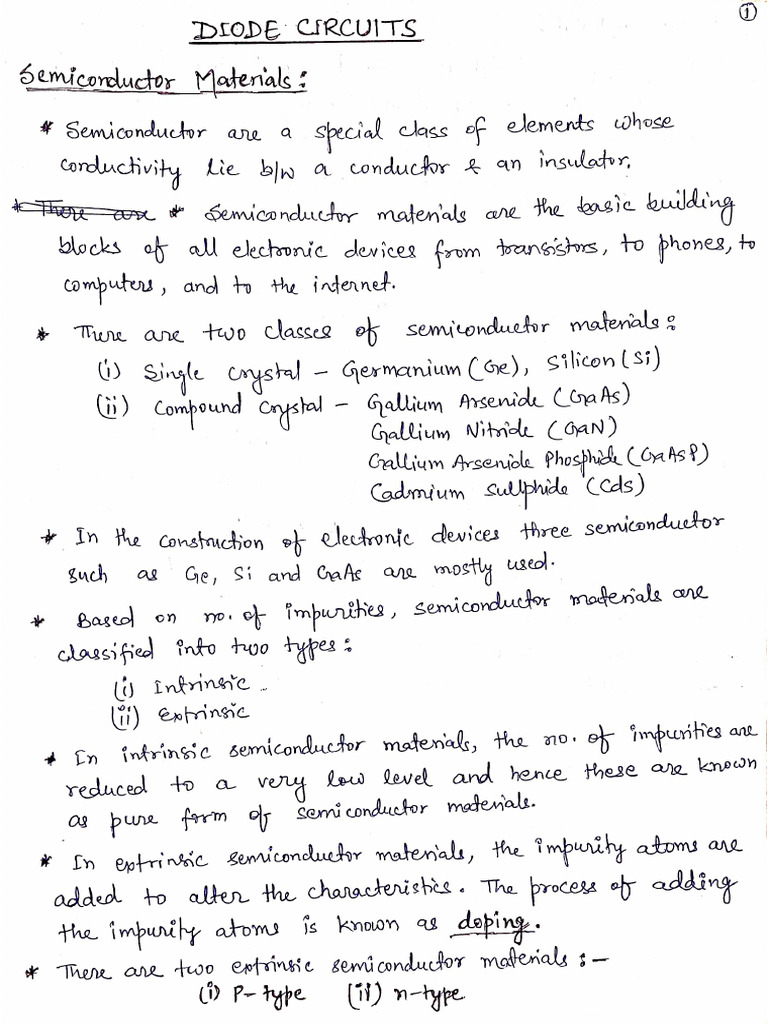 ①
DIODE CIRCUITS
Semiconductor Materials:
* Semiconductor are a special class of elements whose
conductivity lie b/w a conductor & an insulator.
* There are * Semiconductor materials are the basic building
blocks of all electronic devices from transistors, to phones, to
computers, and to the internet.
* There are two classes of semiconductor materials:
(i) Single crystal – Germanium (Ge), Silicon (Si)
(ii) Compound crystal – Gallium Arsenide (GaAs)
Gallium Nitride (GaN)
Gallium Arsenide Phosphide (GaAsP)
Cadmium Sullphide (Cds)
* In the construction of electronic devices three semiconductor
such as Ge, Si and GaAs are mostly used.
* Based on no. of impurities, semiconductor materials are
classified into two types:
(i) Intrinsic
(ii) Extrinsic
* In intrinsic semiconductor materials, the no. of impurities are
reduced to a very low level and hence these are known
as pure form of semiconductor materials.
* In extrinsic semiconductor materials, the impurity atoms are
added to alter the characteristics. The process of adding
the impurity atoms is known as doping.
* There are two extrinsic semiconductor materials :–
(i) P-type (ii) n-type